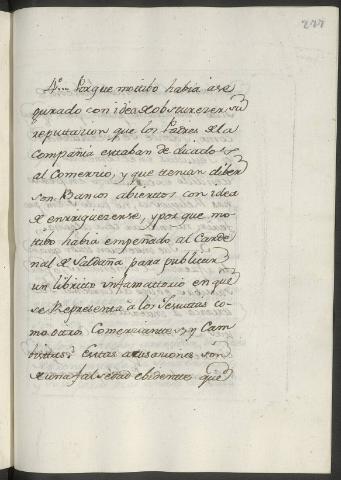 277
4º Porque motibo habia ase
gurado con idea de obscurezer su
reputazion que los Padres de la
Compañia estaban dedicados
al Comerzio, y que tenian diber
sos Bancos abiertos con idea
de enrriquezerse, y por que mo
tibo habia empeñado al Carde
nal de Saldaña para publicar
un libritto infamattorio en que
se Representa a los Jesuitas co
mo otros Comerziantes, y Cam
bistas? Estas acusaziones son
de una falsedad ebidente, que